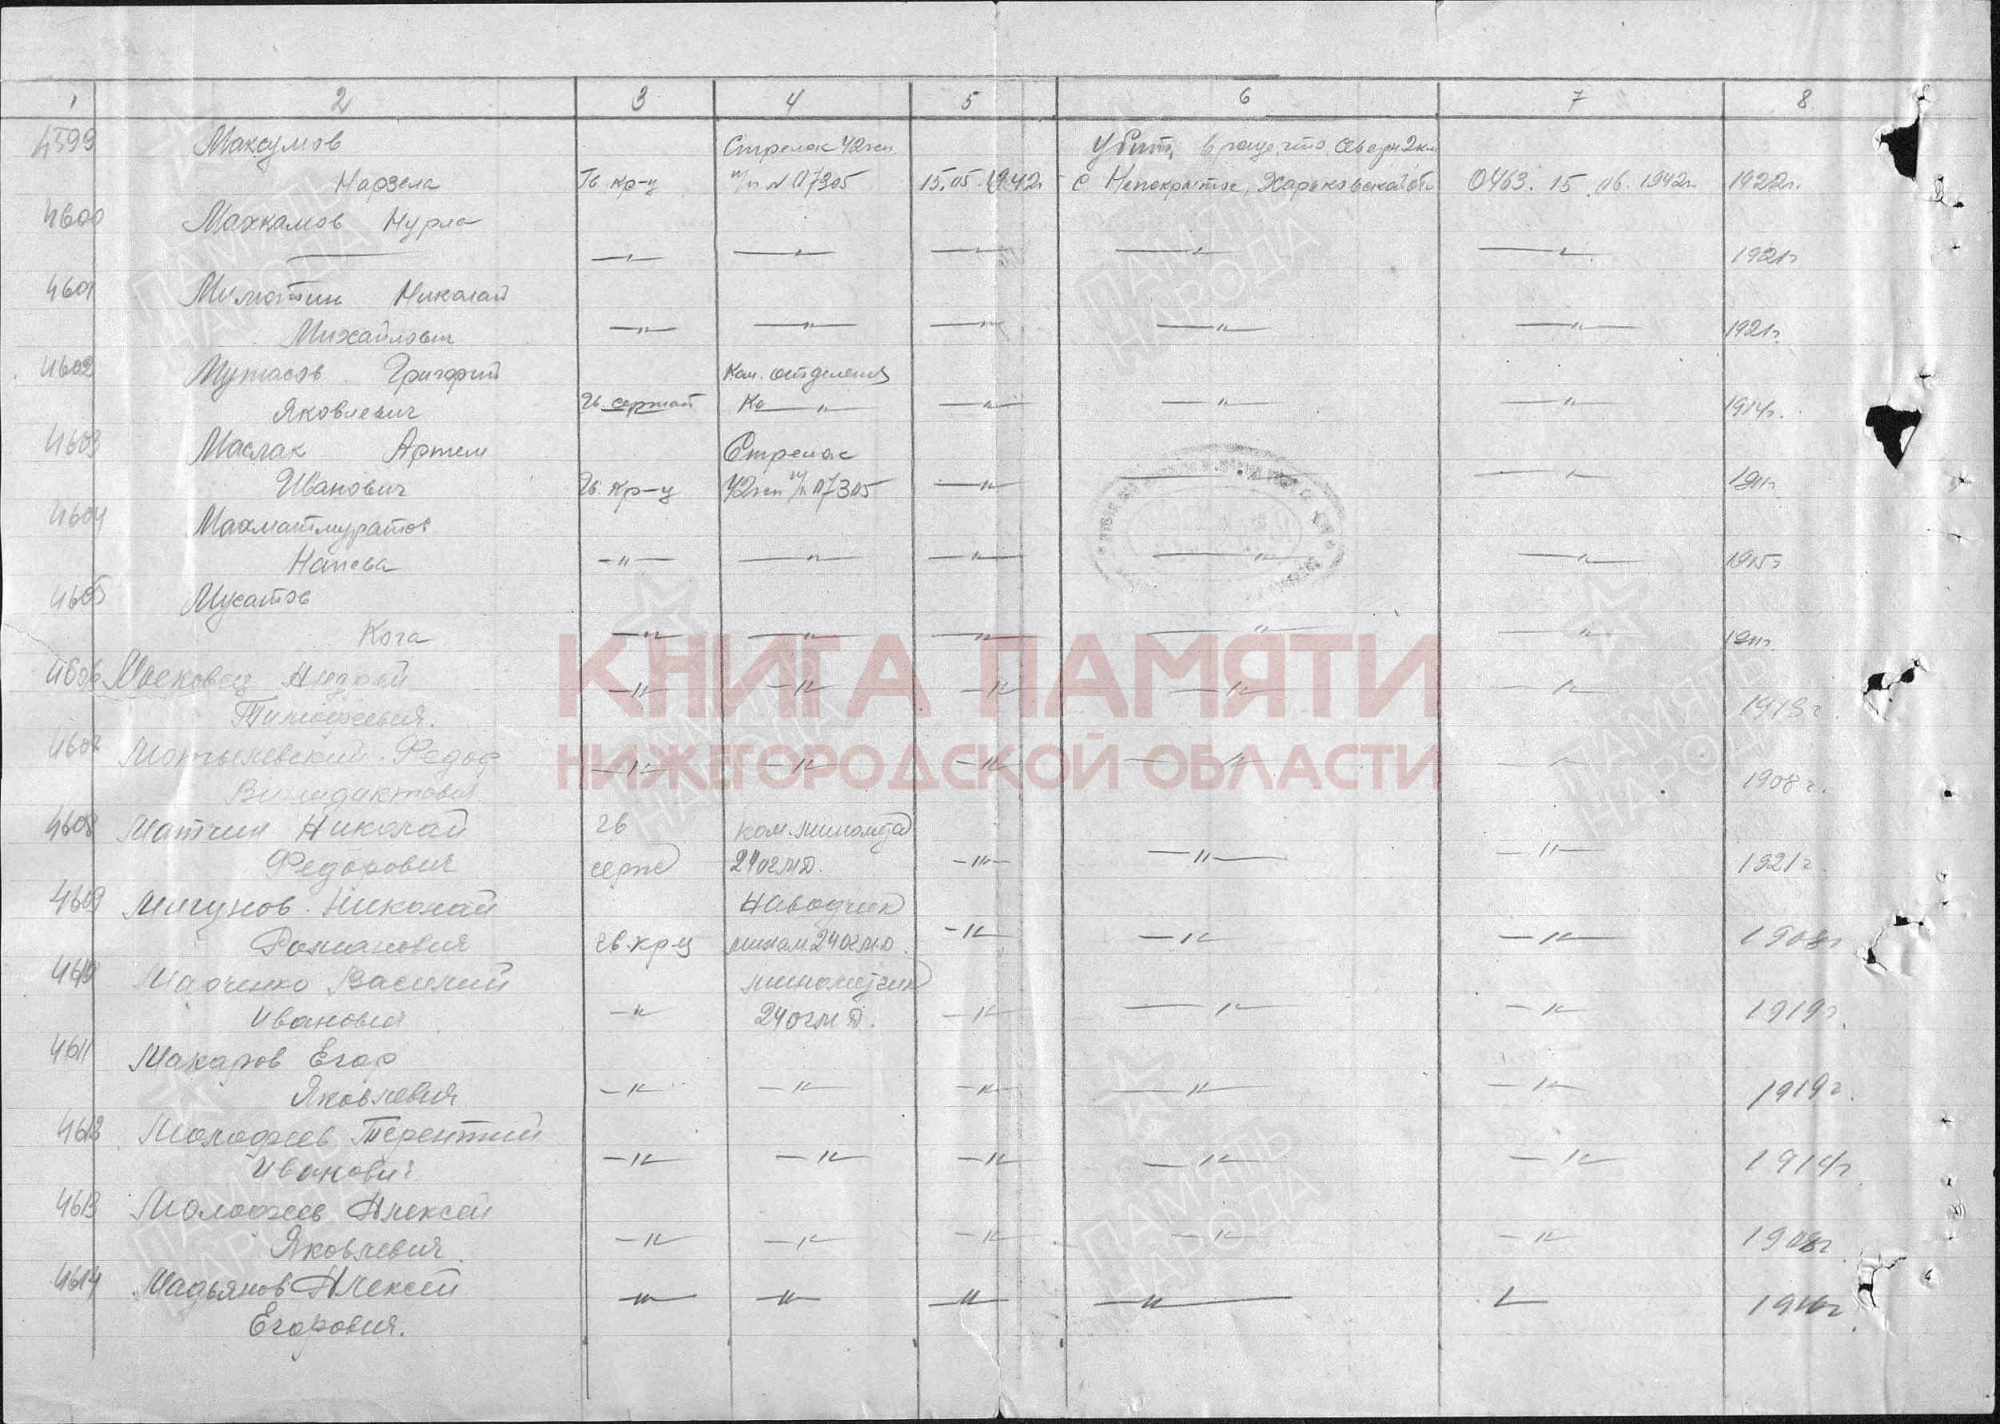 1 2 3 4 5 6 7 8
4599 Максумов Стрелок 42гсп Убит, в роще, что северн 2км
Нарзела Гв. кр-ц п/п № 07305 15.05.1942г с Непокрытое, Харьковской обл 0463. 15.06.1942г. 1922г.
4600 Махкамов Нурла
—— —"— —"— —"— —"— —"— 1921г
4601 Милютин Николай
Михайлович —"— —"— —"— —"— —"— 1921г.
4602 Мутасов Григорий Ком. отделения
Яковлевич Гв. сержант —"— —"— —"— —"— 1914г.
4603 Маслак Артем Стрелок
Иванович Гв. кр-ц 42гсп п/п 07305 —"— —"— —"— 1911г.
4604 Махматмуратов
Напева —"— —"— —"— —"— —"— 1915г
4605 Мусатов
Кога —"— —"— —"— —"— —"— 1911г.
4606 Московец Андрей
Тимофеевич. —"— —"— —"— —"— —"— 1913г.
4607 Мотылевский Федор
Венедиктович —"— —"— —"— —"— —"— 1908г.
4608 Матчин Николай гв ком. миномета
Федорович серж 24огмд. —"— —"— —"— 1921г
4609 Мигунов Николай Наводчик
Романович гв. кр-ц мином 24огмд. —"— —"— —"— 1908г
4610 Марченко Василий минометчик
Иванович —"— 24огмд. —"— —"— —"— 1919г.
4611 Макаров Егор
Яковлевич —"— —"— —"— —"— —"— 1919г.
4612 Молофеев Терентий
Иванович —"— —"— —"— —"— —"— 1914г
4613 Молофеев Алексей
Яковлевич. —"— —"— —"— —"— —"— 1908г
4614 Мадьянов Алексей
Егорович. —"— —"— —"— —"— —"—
КНИГА ПАМЯТИ
НИЖЕГОРОДСКОЙ ОБЛАСТИ
ПАМЯТЬ
НАРОДА